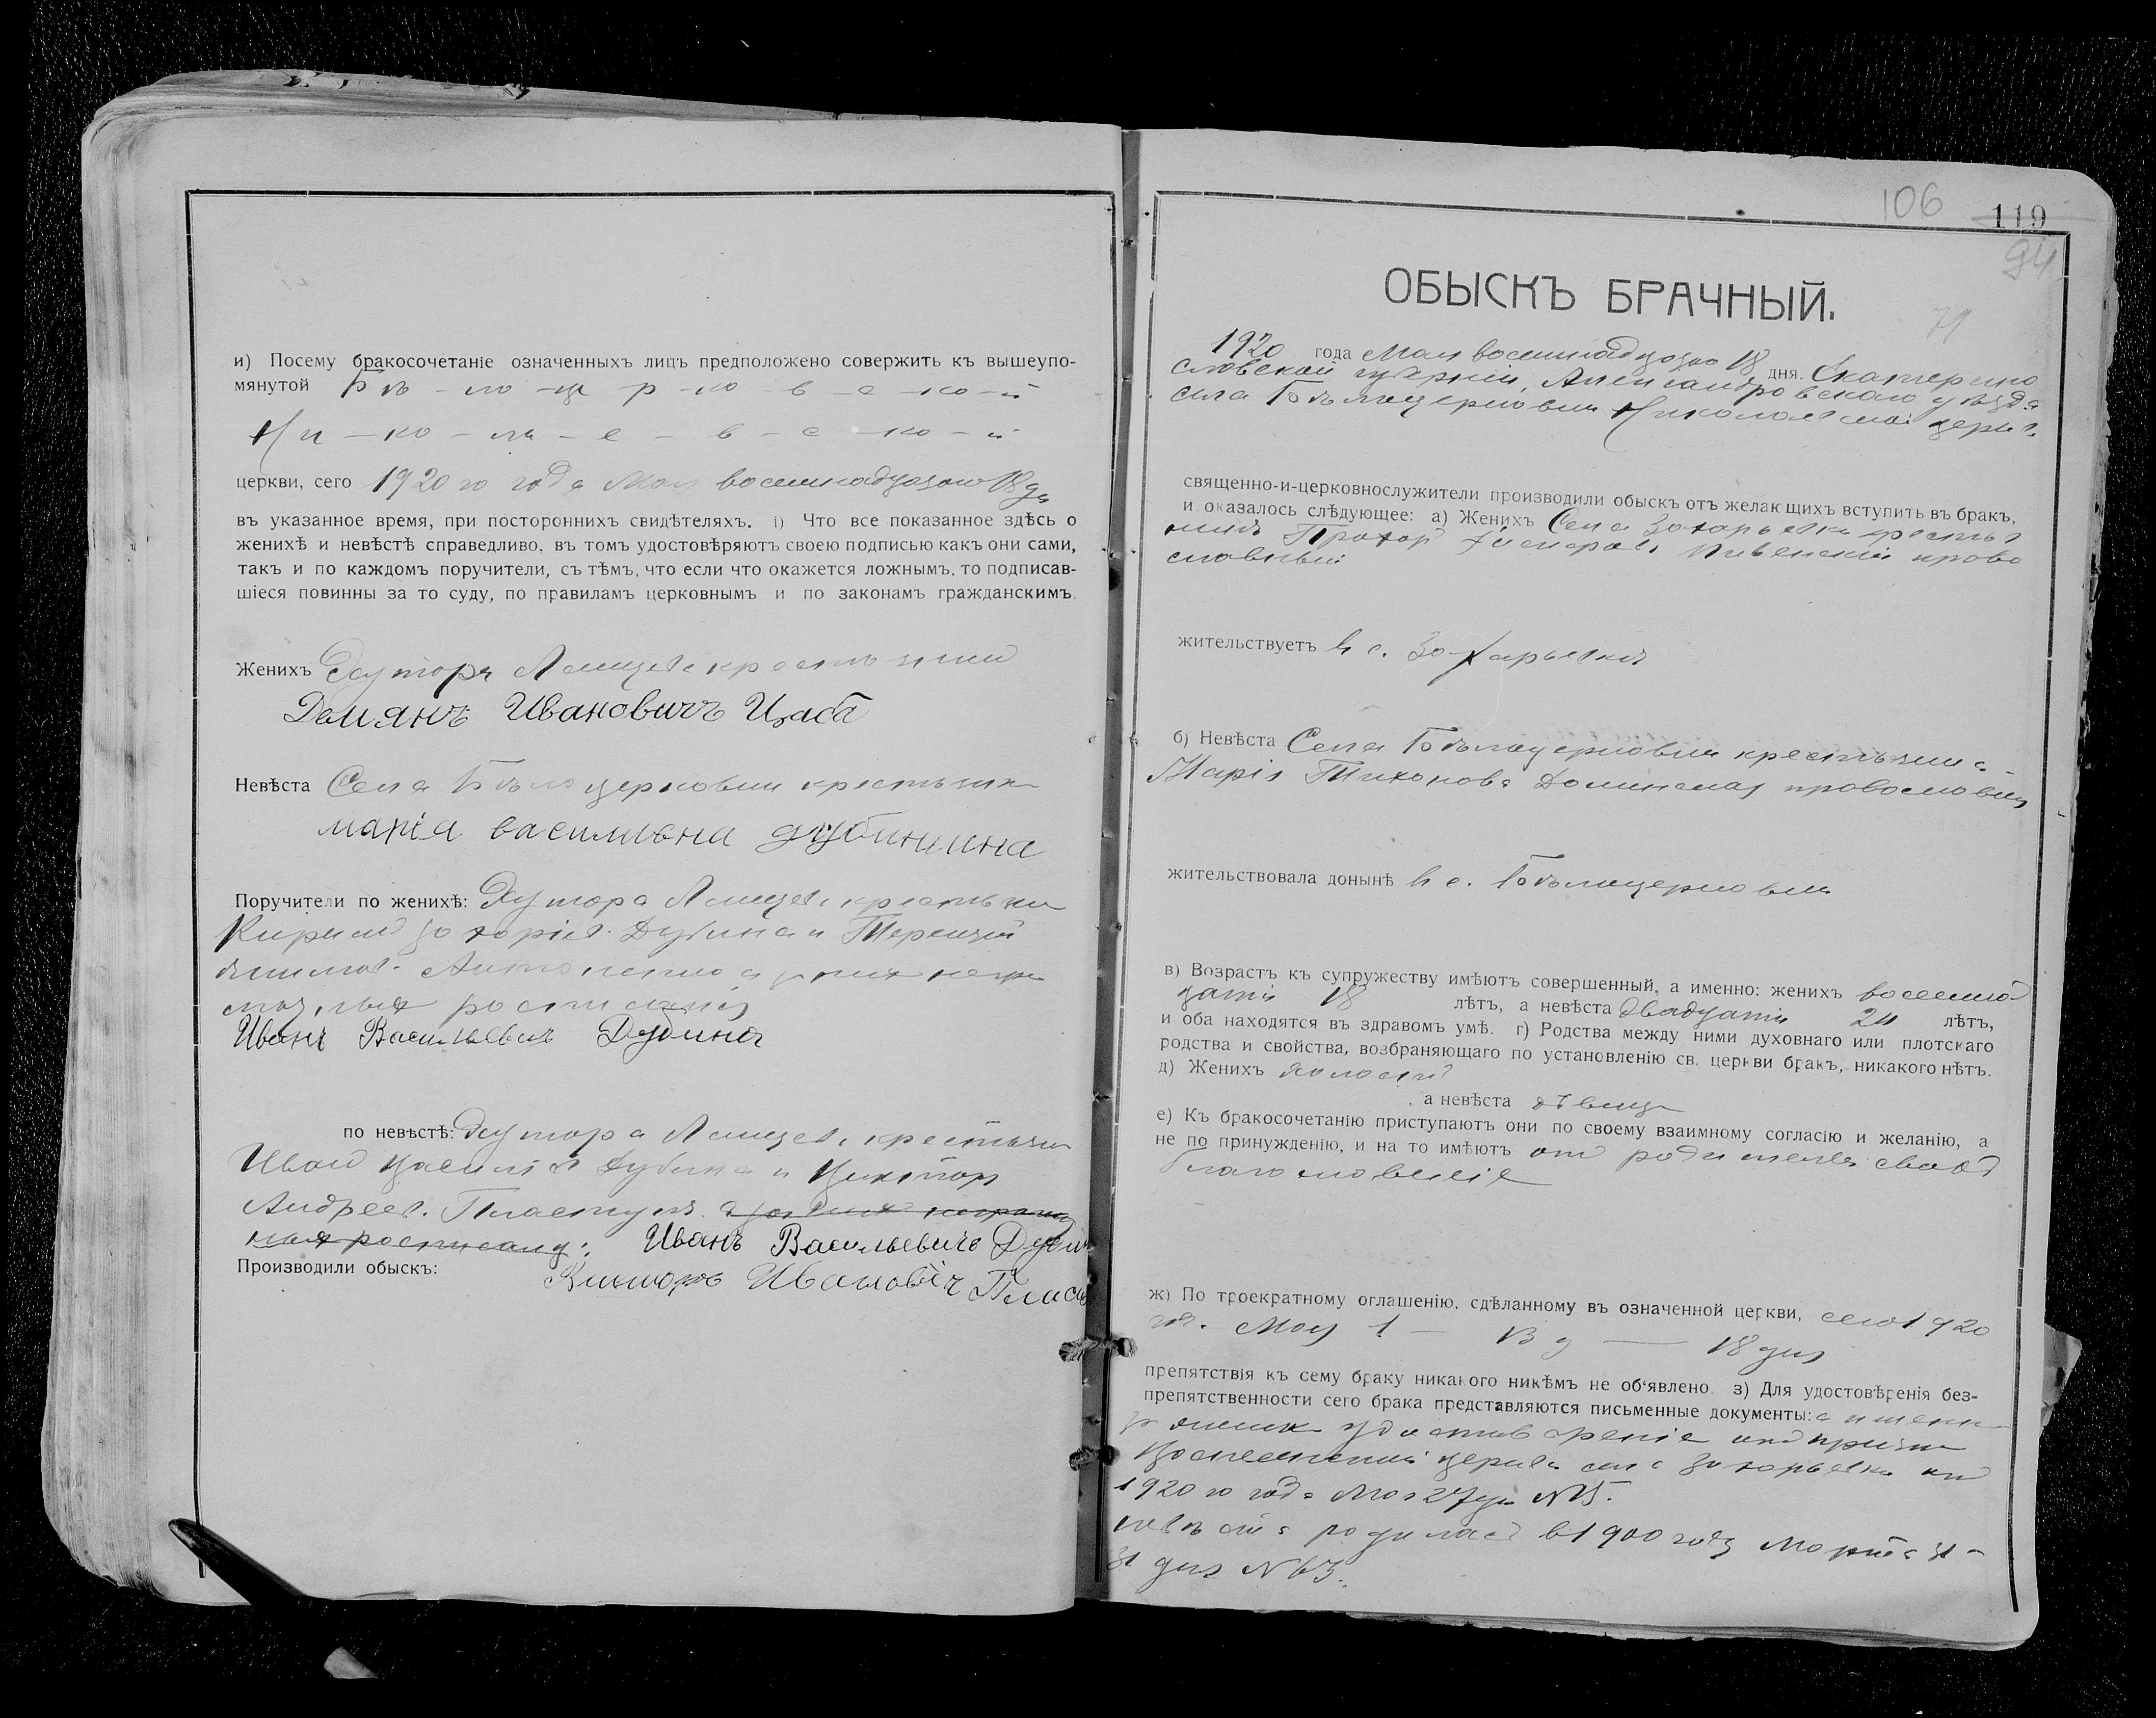 и) Посему бракосочетаніе означенныхъ лицъ предположено совержить къ вышеупо-
мянутой Бѣ - ло - це р - ко - в - с - ко - й
Ни - ко - ла - е - в - с - ко - й
церкви, сего 1920 го года Мая восемнадцатаго 18 дн
въ указанное время, при постороннихъ свидѣтеляхъ. і) Что все показанное здѣсь о
женихѣ и невѣстѣ справедливо, въ томъ удостовѣряютъ своею подписью какъ они сами,
такъ и по каждомъ поручители, съ тѣмъ, что если что окажется ложнымъ, то подписав-
шіеся повинны за то суду, по правиламъ церковнымъ и по законамъ гражданскимъ.
Женихъ Хутора крестьянин
Демянъ Ивановичъ Цаба
Невѣста Села Бѣлоцерковки крестьянка
марія васильвна дубинина
Поручители по женихѣ: Хутора крестьяне
Кирилл Захаріев. Дубина и Терентій
Антоненко а за них негра
мотных росписался
Иванъ Васильевичъ Дубина
по невѣстѣ: Хутора крестьяне
Иван Василіев Дубина и Виктор
Андреев. Пластун а за них неграмот
ных росписался: Иванъ Васильевичъ Дуби
Производили обыскъ: Викторъ Ивановіч Пласт
106 119
94
79
ОБЫСКЪ БРАЧНЫЙ.
1920 года Мая восемнадцатаго 18 дня. Екатерино
славской губерніи, Александровскаго уѣзда
села Бѣлоцерковки Николаевской церкв.
священно-и-церковнослужители производили обыскъ отъ желающихъ вступить въ бракъ,
и оказалось слѣдующее: а) Женихъ Села Захарьевки крестья
нинъ Прохор Пивенскій право
славный
жительствуетъ в с. Захарьевкѣ
б) Невѣста Села Бѣлоцерковки крестьянка
Марія Тихонова Долинская православная
жительствовала донынѣ в с. Бѣлоцерковки
в) Возрастъ къ супружеству имѣютъ совершенный, а именно: женихъ восемнад
цати 18 лѣтъ, а невѣста двадцати 20 лѣтъ,
и оба находятся въ здравомъ умѣ. г) Родства между ними духовнаго или плотскаго
родства и свойства, возбраняющаго по установленію св. церкви бракъ, никакого нѣтъ.
д) Женихъ холост
а невѣста дѣвица
е) Къ бракосочетанію приступаютъ они по своему взаимному согласію и желанію, а
не по принужденію, и на то имѣютъ от родителей своих
благословеніе
ж) По троекратному оглашенію, сдѣланному въ означенной церкви, сего 1920
го. Мая 1 — 13 9 — 18 дня
препятствія къ сему браку никакого никѣмъ не об'явлено. з) Для удостовѣренія без-
препятственности сего брака представляются письменные документы: а именно
удостоверение от причта
Вознесенской церкви села Захарьевки от
1920 го года Мая 27 дн N 15.
невѣста родилась в 1900 году Марта 31
31 дня N 63.